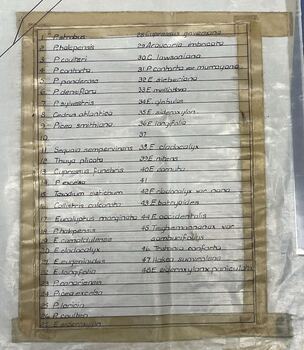 1 P. strobus
2 P. halepensis
3 P. coulteri
4 P. contorta
5 P. ponderosa
6 P. densiflora
7 P. sylvestris
8 Cedrus atlantica
9 Picea smithiana
10
11 Sequoia sempervirens
12 Thuya plicata
13 Cupressus funebris
14 P. excelsa
15 Taxodium distichum
16 Callistris calcarata
17 Eucalyptus marginata
18 P. halepensis
19 E. camaldulensis
20 E. cladocalyx
21 E. eugenioides
22 E. longifolia
23 P. canariensis
24 Picea excelsa
25 P. laricio
26 P. coulteri
27 E. sideroxylon
28 Cupressus goveniana
29 Araucaria imbricata
30 C. lawsoniana
31 P. contorta var murrayana
32 E. sieberiana
33 E. melliodora
34 E. globulus
35 E. sideroxylon
36 E. longifolia
37
38 E. cladocalyx
39 E. nitens
40 E. cornuta
41
42 E. cladocalyx var nana
43 E. botryoides
44 E. occidentalis
45 Tieghemopanax var
sambucifolius
46 Tristania conferta
47 Hakea suaveolens
48 E. sideroxylon x paniculata